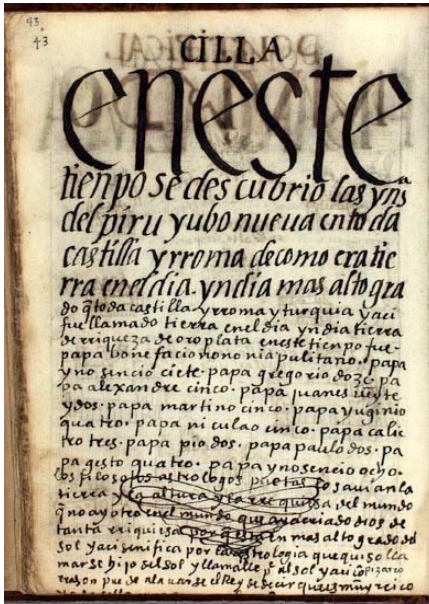 43
43
CILLA
eneste
tienpo se descubrio las yn^as
del piru y ubo nueua en toda
castilla y rroma de como era tie
rra en el dia. yndia mas alto gra
do q̄ toda castilla y rroma y turquia y aci
fue llamado tierra en el dia yndia tierra
de rriqueza de oro plata en este tienpo fue.
papa bonefacio nono napulitano. papa
ynosencio ciete. papa gregorio doze. pa
pa alexandre cinco. papa juanes ueynte
y dos. papa martino cinco. papa yuginio
quatro. papa niculao cinco. papa calic
tro tres. papa pio dos. papa paulo dos. pa
pa gesto quatro. papa ynosencio ocho.
los filosofos astrologos puetas lo sauian la
tierra y la altura y la rriquiesa del mundo
q̄ no ay otro en el mundo que aya criado dios de
tanta rriquiesa porque esta en mas alto grado del
sol y aci senifica por la astrologia que quiso lla
marse hijo del sol y llamalle p^e al sol y aci co
rrason puede alauarse el rrey de decir ques muy rrico